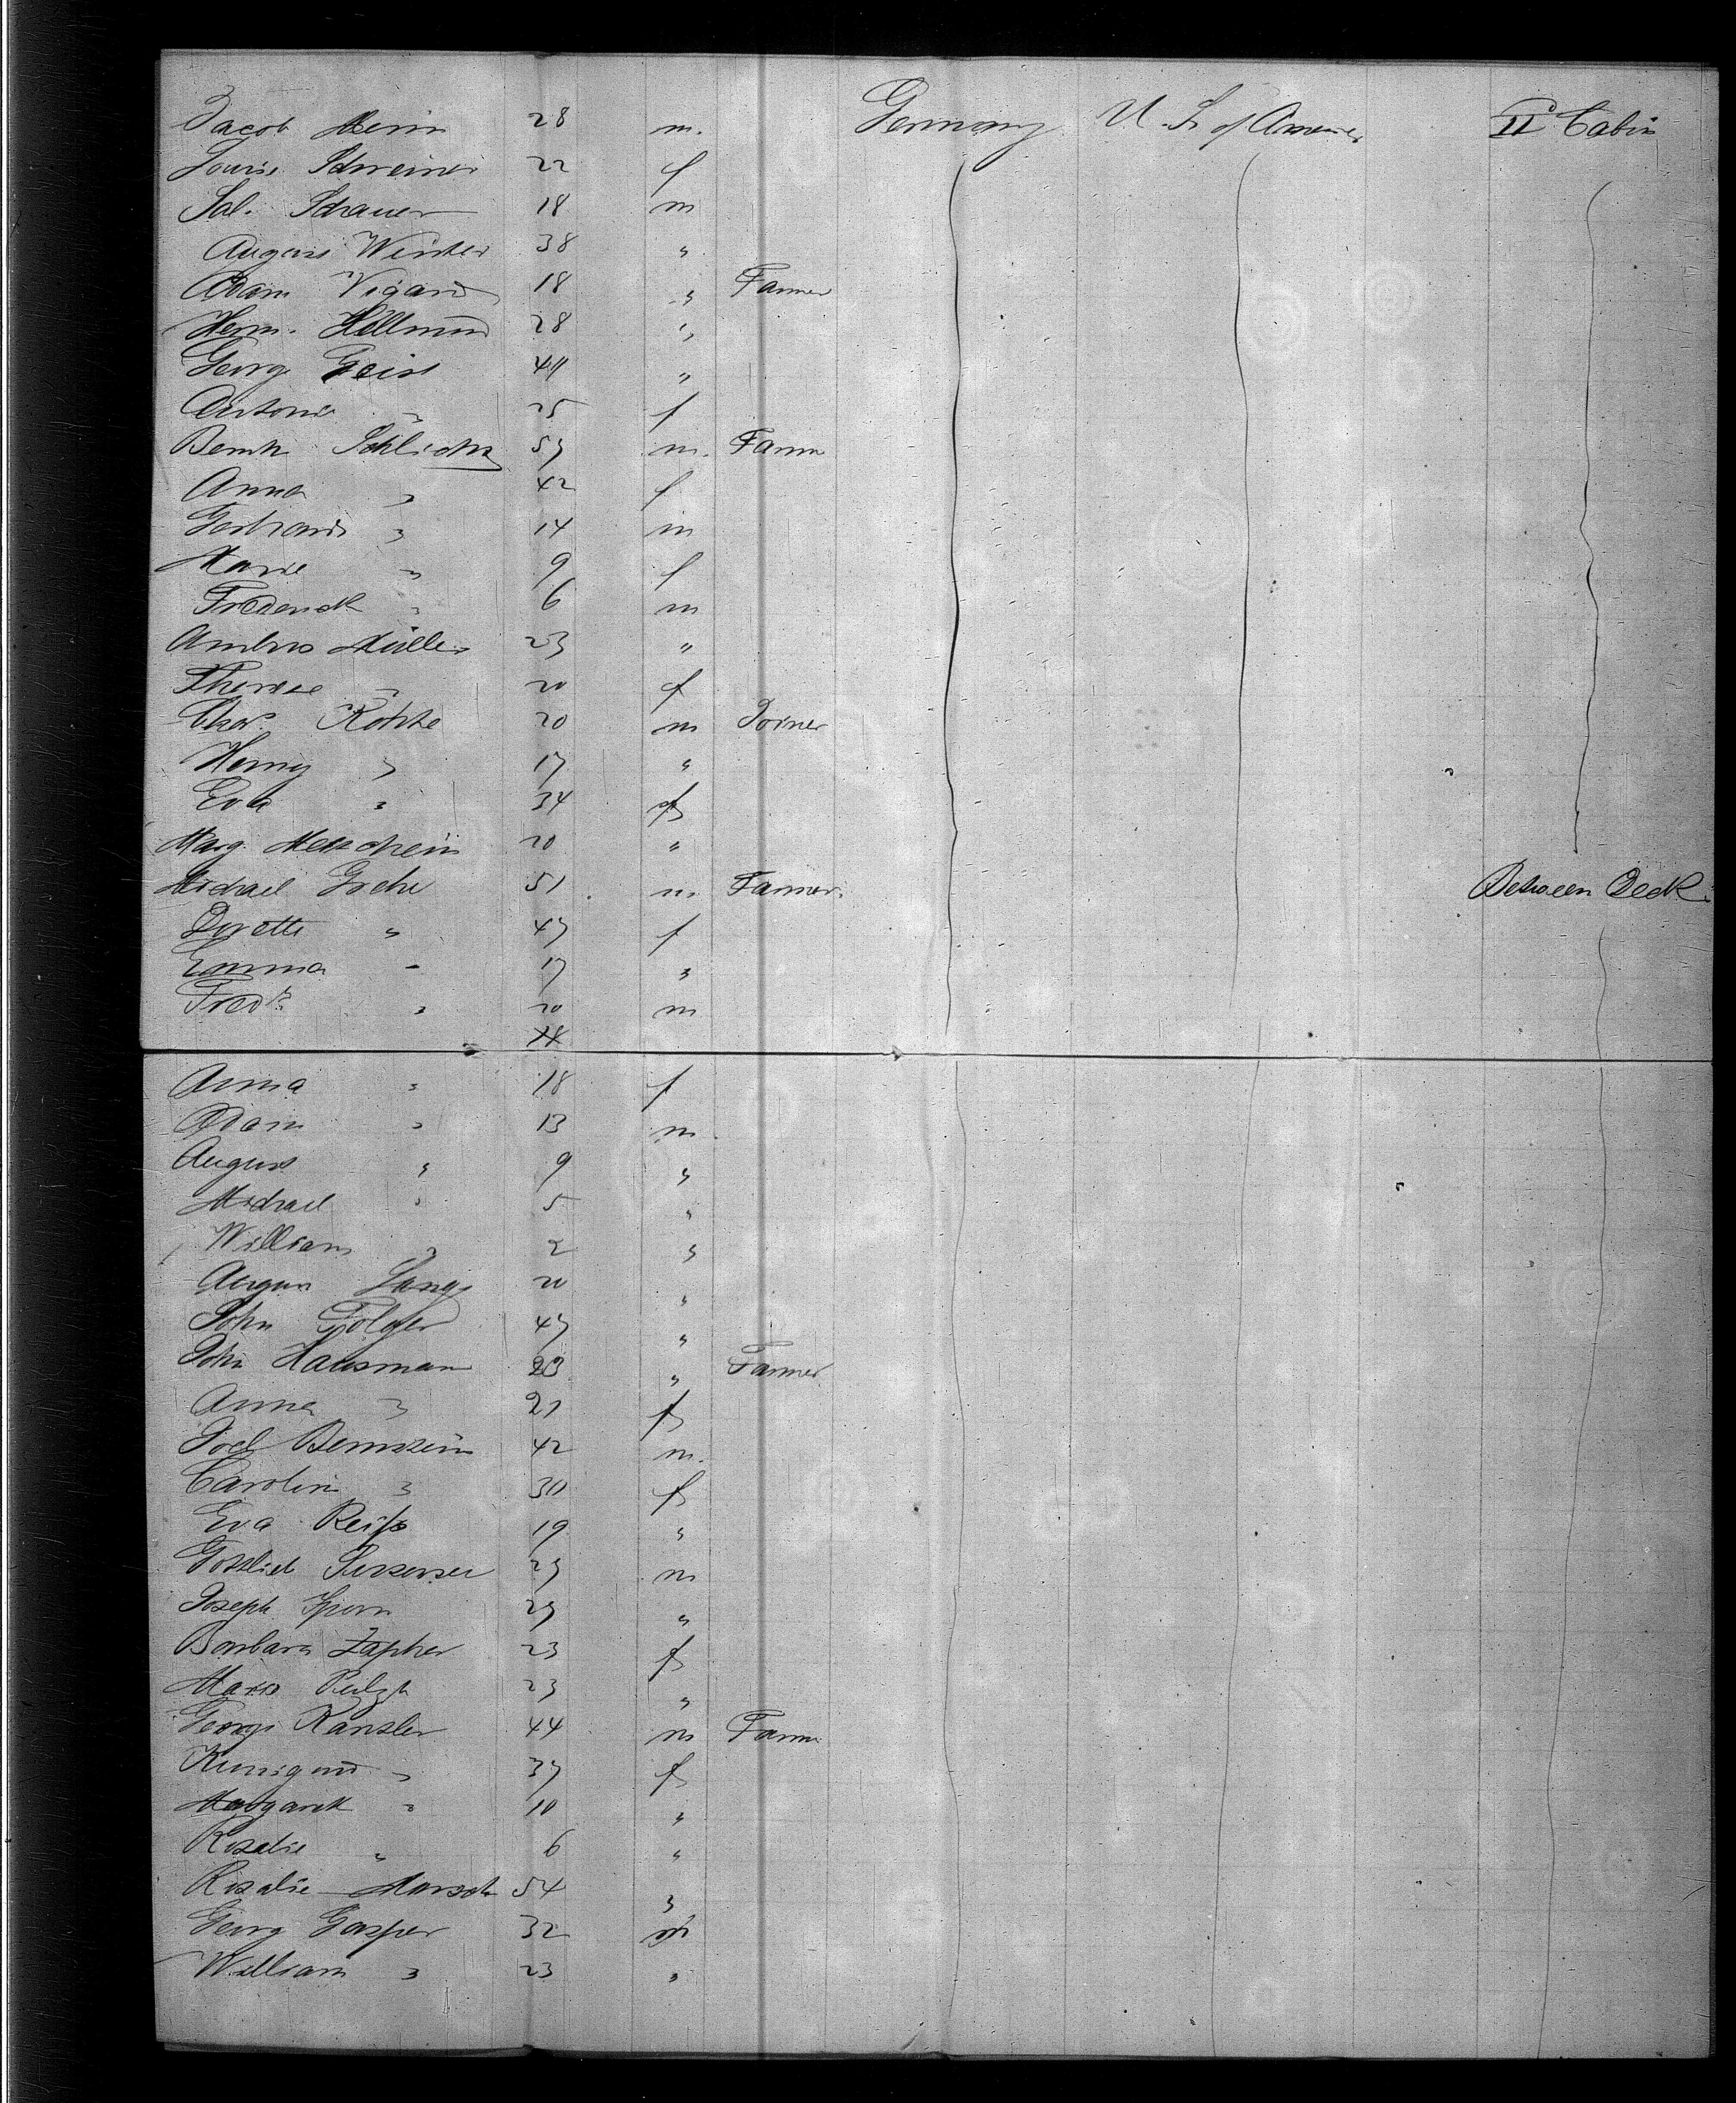 Jacob Henn 28 m. Germany U. S. of America II Cabin
Louise Schreiner 22 f
Sal. Schauer 18 m
August Winter 38 "
Adam Vigard 18 " Farmer
Herm. Hellmund 28 "
Georg Geist 44 "
Antoni " 25 f
Bernh Schlicht 57 m. Farm
Anna " 42 f
Gerhard " 14 m
Marie " 9 f
Frederick " 6 m
Ambros Müller 23 "
Therese " 20 f
Chas. Kothe 20 m Joiner
Henry " 17 "
Eva " 34 f
Marg. 20 "
Michael Goehe 51 m Farmer. Between Deck
Dorette " 47 f
Emma " 17 "
Fredk " 20 m
18
Anna " 18 f
Adam " 13 m
August " 9 "
Michael " 5 "
William " 2 "
August Lang 20 "
John Fölger 47 "
John Hausman 23 " Farmer
Anna " 21 f
Joel Bernstein 42 m.
Carolin " 30 f
Eva Reiss 19 "
Gottlieb 27 m
Joseph 27 "
Barbara Zapher 23 f
23 "
Georg Kanzler 44 m Farm
Kunigund " 37 f
Margareth " 10 "
Rosalie " 6 "
Rosalie Marsch 54 "
Georg Gasper 32 m
William " 23 "